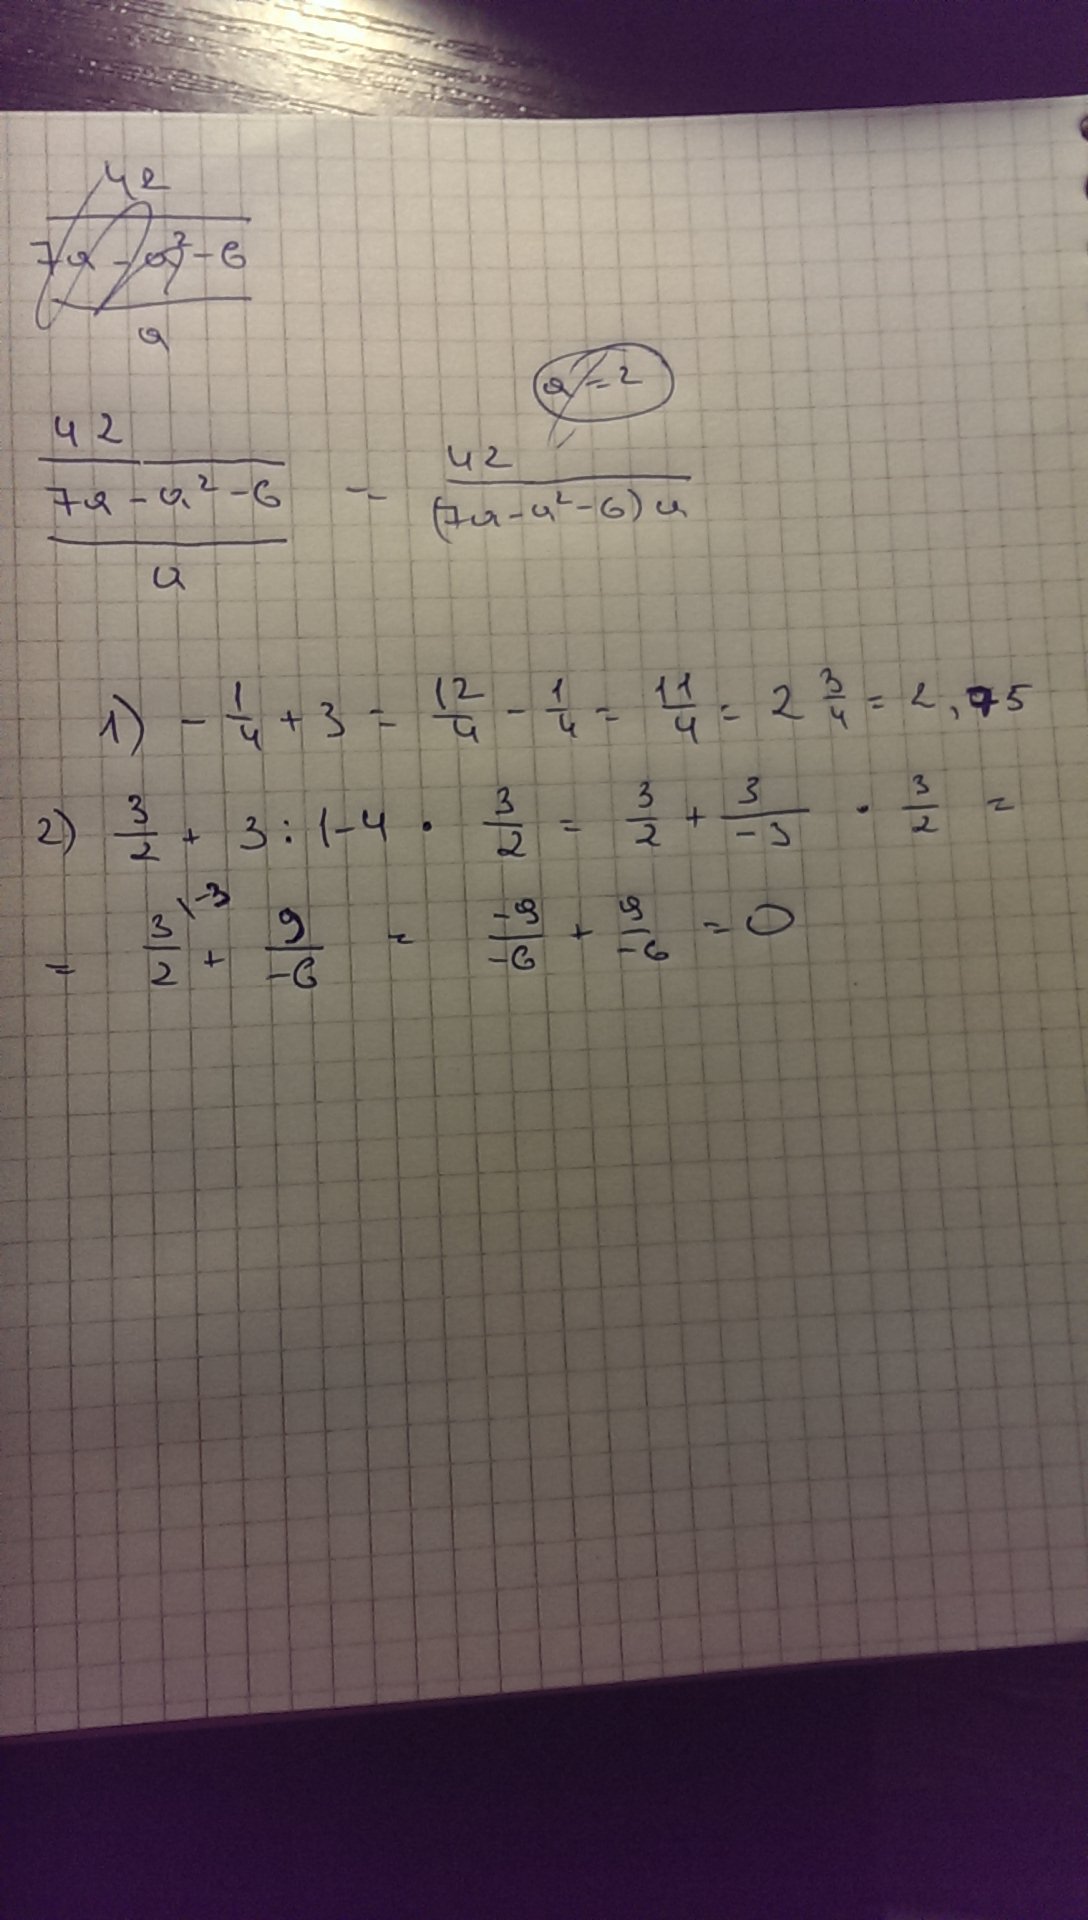 42
7a - a² - 6
a
a = 2
42
7a - a² - 6
a
=
42
(7a - a² - 6) a
1) - 1/4 + 3 = 12/4 - 1/4 = 11/4 = 2 3/4 = 2,75
2) 3/2 + 3 : 1-4 · 3/2 = 3/2 + 3/-3 · 3/2 =
= 3/2 \-3 + 9/-6 = -9/-6 + 9/-6 = 0